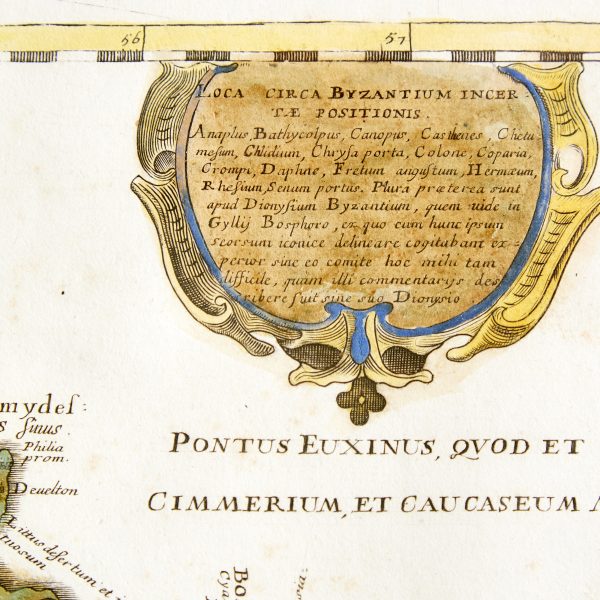 56
57
LOCA CIRCA BYZANTIUM INCER-
TÆ POSITIONIS.
Anaplus, Bathycolpus, Canopus, Casthenes, Chetu
mesum, Chlidium, Chrysa porta, Colone, Coparia,
Crompi, Daphne, Fretum angustum, Hermæum,
Rhesium, Senum portus. Plura præterea sunt
apud Dionysium Byzantium, quem uide in
Gyllij Bosphoro, ex quo cum hunc ipsum
seorsum iconice delineare cogitabam ex-
perior sine eo comite hoc mihi tam
difficile, quam illi commentarys des
cribere fuit sine suo Dionysio.
mydes:
s sinus.
Philia
prom.
Deuelton
PONTUS EUXINUS, QVOD ET
CIMMERIUM, ET CAUCASEUM
Littus desertum et i
tuosum
Bo
Cya